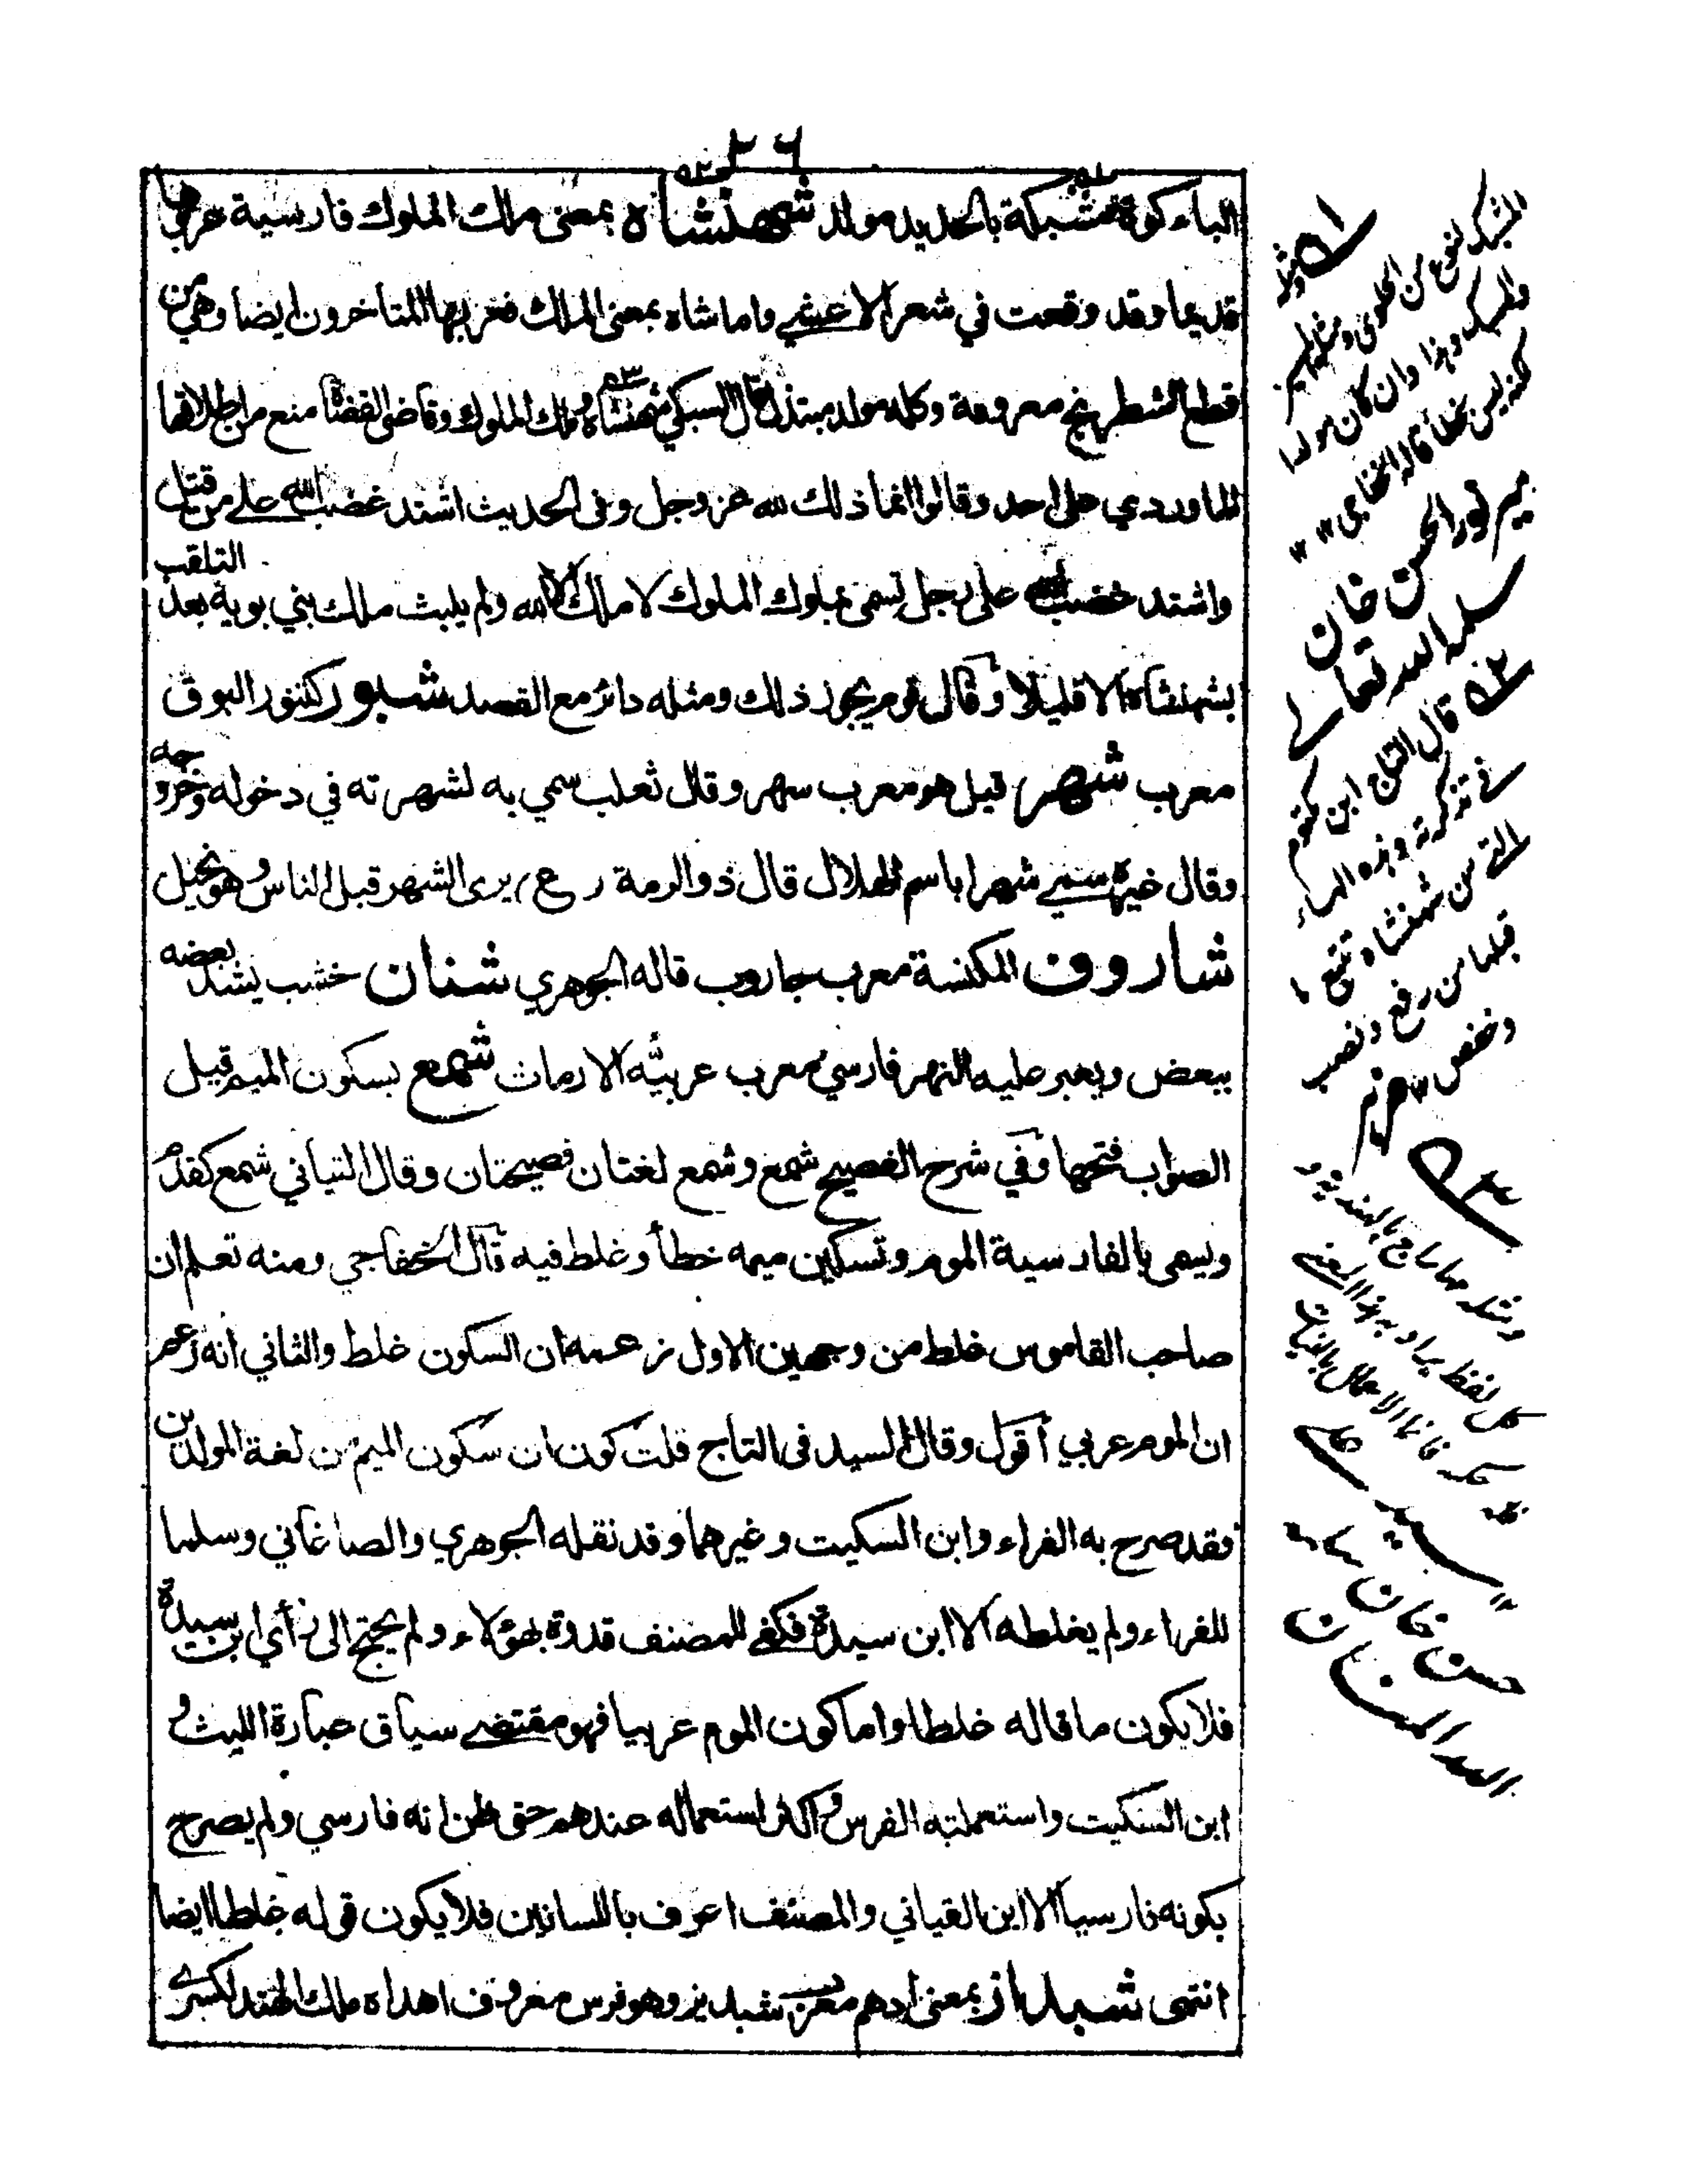 ٢٦
الباء كوة مشبكة بالحديد مولد شهنشاه بمعنى ملك الملوك فارسية عربوها
قديما وقد وقعت في شعر الاعشى واما شاه بمعنى الملك فعربها المتاخرون ايضا وهي من
قطع الشطرنج معروفة وكله مولد مبتذل قال السبكي شهنشاه وملك الملوك وقاضى القضاة منع من اطلاقها
الماوردي على احد وقالوا انما ذلك لله عز وجل وفى الحديث اشتد غضب الله على من قتل
واشتد غضب الله على رجل تسمى بملوك الملوك لا ملك الا لله ولم يلبث ملك بني بويه بعد التلقب
بشهنشاه الا قليلا وقال قوم يجوز ذلك ومثله دائر مع القصد شبور كتنور البوق
معرب شهر قيل هو معرب سهر وقال ثعلب سمي به لشهرته في دخوله وخروجه
وقال غيره سمي شهرا باسم الهلال قال ذو الرمة ع يرى الشهر قبل الناس وهو نحيل
شاروف المكنسة معرب جاروب قاله الجوهري شنان خشب يشد بعضه
ببعض ويعبر عليه النهر فارسي معرب عربيه الارماث شمع بسكون الميم قيل
الصواب فتحها وفي شرح الفصيح شمع وشمع لغتان فصيحتان وقال التياني شمع كقدم
ويسمى بالفارسية الموم وتسكين ميمه خطأ وغلط فيه قال الخفاجي ومنه تعلم ان
صاحب القاموس غلط من وجهين الاول زعمه ان السكون غلط والثاني انه زعم
ان الموم عربي أقول وقال السيد فى التاج قلت كون ان سكون الميم من لغة المولدين
فقد صرح به الفراء وابن السكيت وغيرهما وقد نقله الجوهري والصاغاني وسلما
للفراء ولم يغلطه الا ابن سيدة فكفى للمصنف قدوة بهؤلاء ولم يحتج الى رأي ابن سيدة
فلا يكون ما قاله غلطا واما كون الموم عربيا فهو مقتضى سياق عبارة الليث و
ابن السكيت واستعملته الفرس واكثر استعماله عندهم حتى ظن انه فارسي ولم يصرح
بكونه فارسيا الا ابن الفياني والمصنف اعرف باللسانين فلا يكون قوله غلطا ايضا
انتهى شبداز بمعنى ادهم معرب شبديز وهو فرس معروف اهداه ملك الهند لكسرى
المشبك لنوع من الحلوى
وهذا وان كان مولدا
لكنه ليس بخطأ قاله الخفاجي
مير نور الحسن خان
سلمه الله تعالى
٥٢ قال التاج ابن مكتوم
في تذكرته وهذه الهاء
التي من شهنشاه تتبع ما
قبلها من رفع ونصب
وخفض
٥٣
ومثله مهاراج بالهند
كل لفظ يراد به هذا المعنى
فانما الاعمال بالنيات